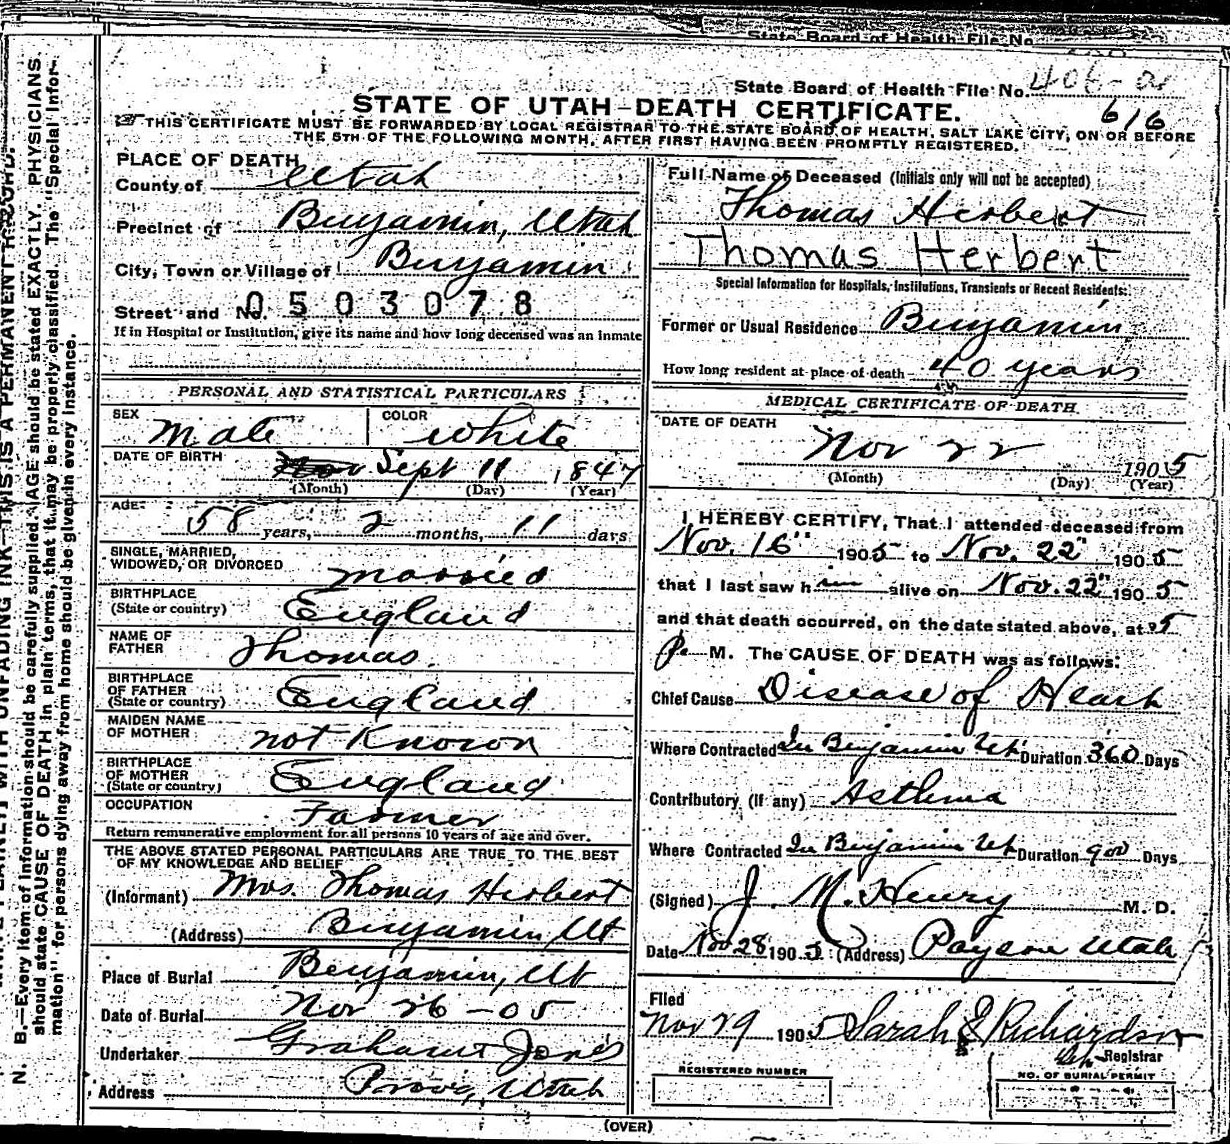 State Board of Health File No.
State Board of Health File No. 406-a
616
STATE OF UTAH—DEATH CERTIFICATE.
THIS CERTIFICATE MUST BE FORWARDED BY LOCAL REGISTRAR TO THE STATE BOARD OF HEALTH, SALT LAKE CITY, ON OR BEFORE
THE 5TH OF THE FOLLOWING MONTH, AFTER FIRST HAVING BEEN PROMPTLY REGISTERED.
PLACE OF DEATH
County of Utah
Precinct of Benjamin, Utah
City, Town or Village of Benjamin
Street and No. 0503078
If in Hospital or Institution, give its name and how long deceased was an inmate
PERSONAL AND STATISTICAL PARTICULARS
SEX Male COLOR White
DATE OF BIRTH Sept 11 1847
(Month) (Day) (Year)
AGE 58 years, 2 months, 11 days
SINGLE, MARRIED,
WIDOWED, OR DIVORCED married
BIRTHPLACE
(State or country) England
NAME OF
FATHER Thomas
BIRTHPLACE
OF FATHER
(State or country) England
MAIDEN NAME
OF MOTHER not Known
BIRTHPLACE
OF MOTHER
(State or country) England
OCCUPATION Farmer
Return remunerative employment for all persons 10 years of age and over.
THE ABOVE STATED PERSONAL PARTICULARS ARE TRUE TO THE BEST
OF MY KNOWLEDGE AND BELIEF
(Informant) Mrs. Thomas Herbert
(Address) Benjamin Ut
Place of Burial Benjamin, Ut
Date of Burial Nov 26-05
Undertaker Graham Jones
Address Provo, Utah
Full Name of Deceased (Initials only will not be accepted)
Thomas Herbert
Thomas Herbert
Special Information for Hospitals, Institutions, Transients or Recent Residents:
Former or Usual Residence Benjamin
How long resident at place of death 40 years
MEDICAL CERTIFICATE OF DEATH
DATE OF DEATH
Nov 22 1905
(Month) (Day) (Year)
I HEREBY CERTIFY, That I attended deceased from
Nov. 16" 1905 to Nov. 22" 1905
that I last saw him alive on Nov. 22" 1905
and that death occurred, on the date stated above, at 5
P. M. The CAUSE OF DEATH was as follows:
Chief Cause Disease of Heart
Where Contracted In Benjamin Ut. Duration 360 Days
Contributory (If any) Asthma
Where Contracted In Benjamin Ut. Duration 900 Days
(Signed) J. M. Henry M. D.
Date Nov 28 1905 (Address) Payson Utah
Filed
Nov 29 1905 Sarah E Richardson
Registrar
REGISTERED NUMBER
NO. OF BURIAL PERMIT
(OVER)
N. B.—Every item of information should be carefully supplied. AGE should be stated EXACTLY. PHYSICIANS
should state CAUSE OF DEATH in plain terms, that it may be properly classified. The "Special Infor-
mation" for persons dying away from home should be given in every instance.